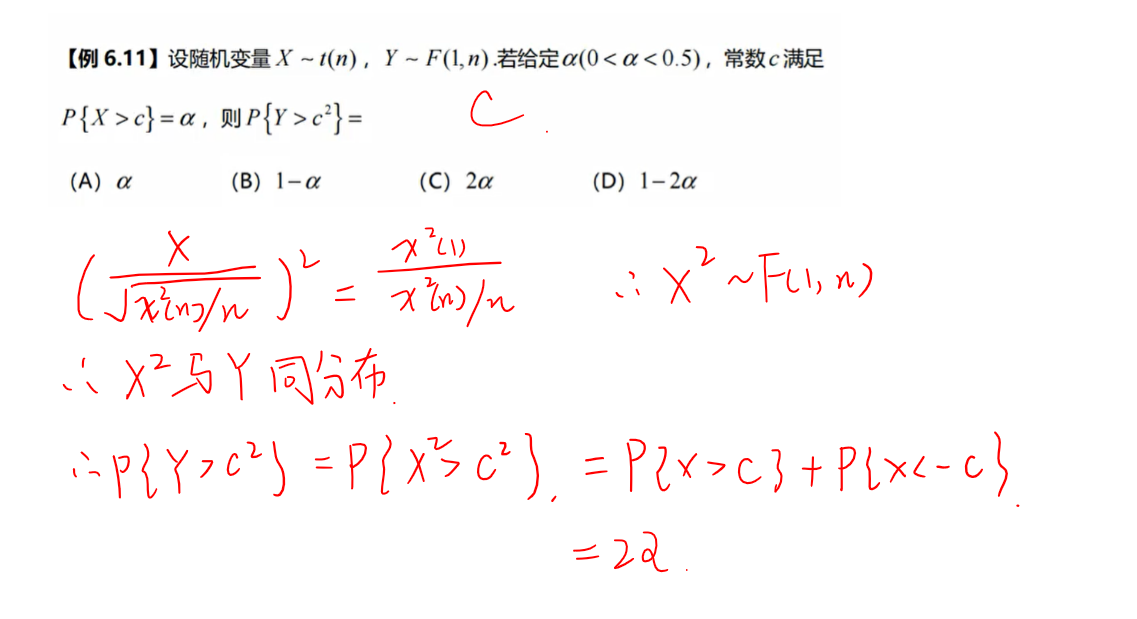 【例 6.11】设随机变量 X ~ t(n)，Y ~ F(1,n).若给定α(0<α<0.5)，常数c满足
P{X>c}=α，则P{Y>c²}= C.
(A) α (B) 1-α (C) 2α (D) 1-2α
(X/√(x²(n)/n))² = x²(1)/(x²(n)/n) ∴ X² ~ F(1,n)
∴ X²与Y同分布.
∴P{Y>c²} = P{X²>c²}. = P{X>c}+P{X<-c}.
=2α.